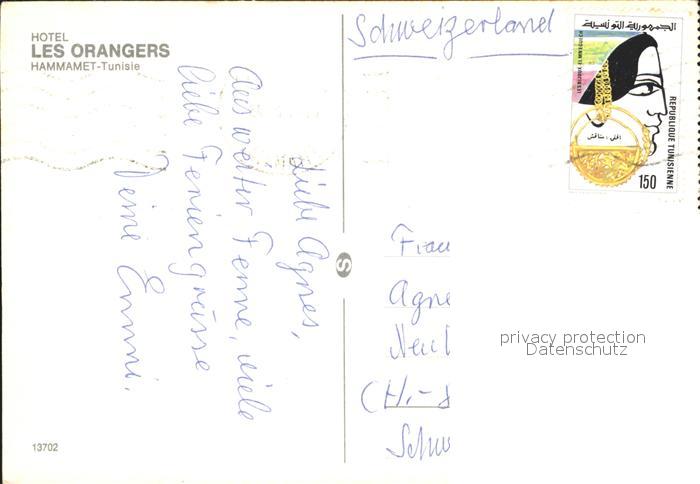 HOTEL
LES ORANGERS
HAMMAMET-Tunisie
Schweizerland
الجمهورية التونسية
REPUBLIQUE TUNISIENNE
150
Liebe Agnes,
Aus weiter Ferne, viele
liebe Feriengrüsse
Deine Emmi.
S
Frau
Agne
(CH.-8
Schw
privacy protection
Datenschutz
13702